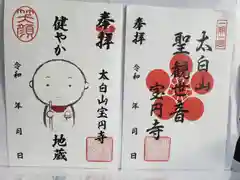 笑顔
奉拝
健やか
地蔵
太白山宝円寺
令和 年 月 日
奉拝
太白山
聖観世音
宝円寺
令和 年 月 日